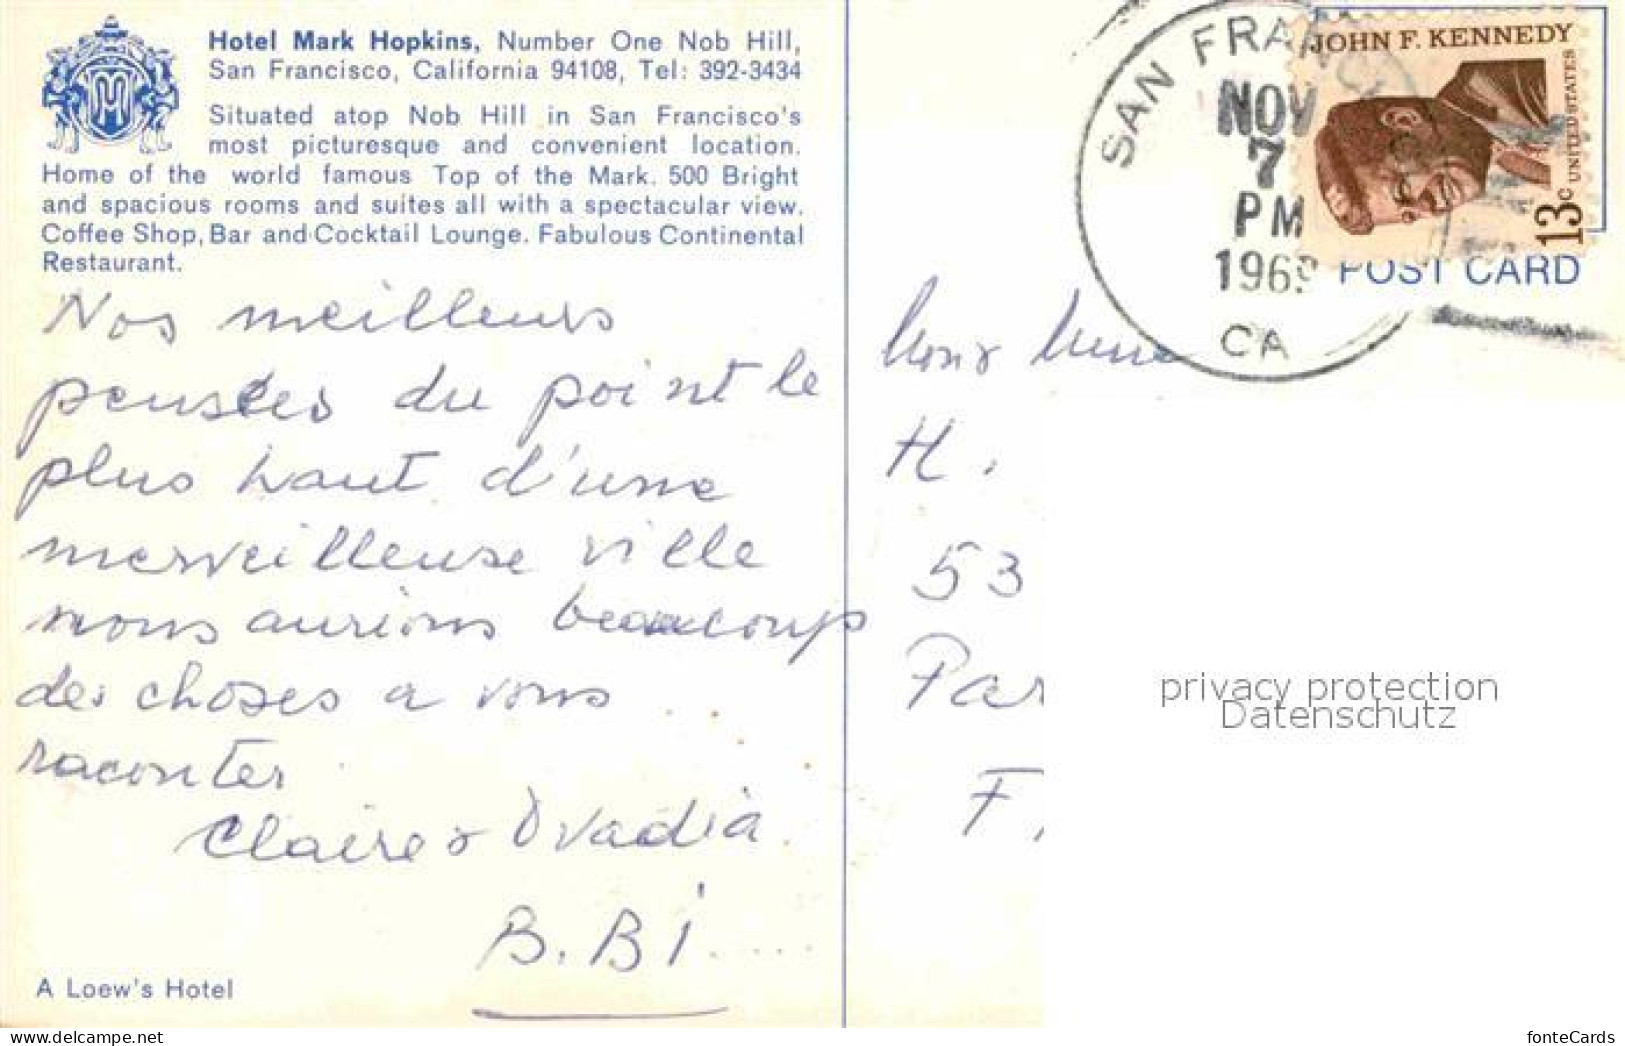 Hotel Mark Hopkins, Number One Nob Hill,
San Francisco, California 94108, Tel: 392-3434
Situated atop Nob Hill in San Francisco's
most picturesque and convenient location.
Home of the world famous Top of the Mark. 500 Bright
and spacious rooms and suites all with a spectacular view.
Coffee Shop, Bar and Cocktail Lounge. Fabulous Continental
Restaurant.
Nos meilleurs
pensées du point le
plus haut d'une
merveilleuse ville
nous aurions beaucoup
des choses a vous
raconter
Claire & Ovadia
B. Bi....
A Loew's Hotel
SAN FRANC
NOV
7
PM
1969
CA
JOHN F. KENNEDY
UNITED STATES
13c
POST CARD
H.
53
Par
F.
privacy protection
Datenschutz
www.delcampe.net
fonteCards